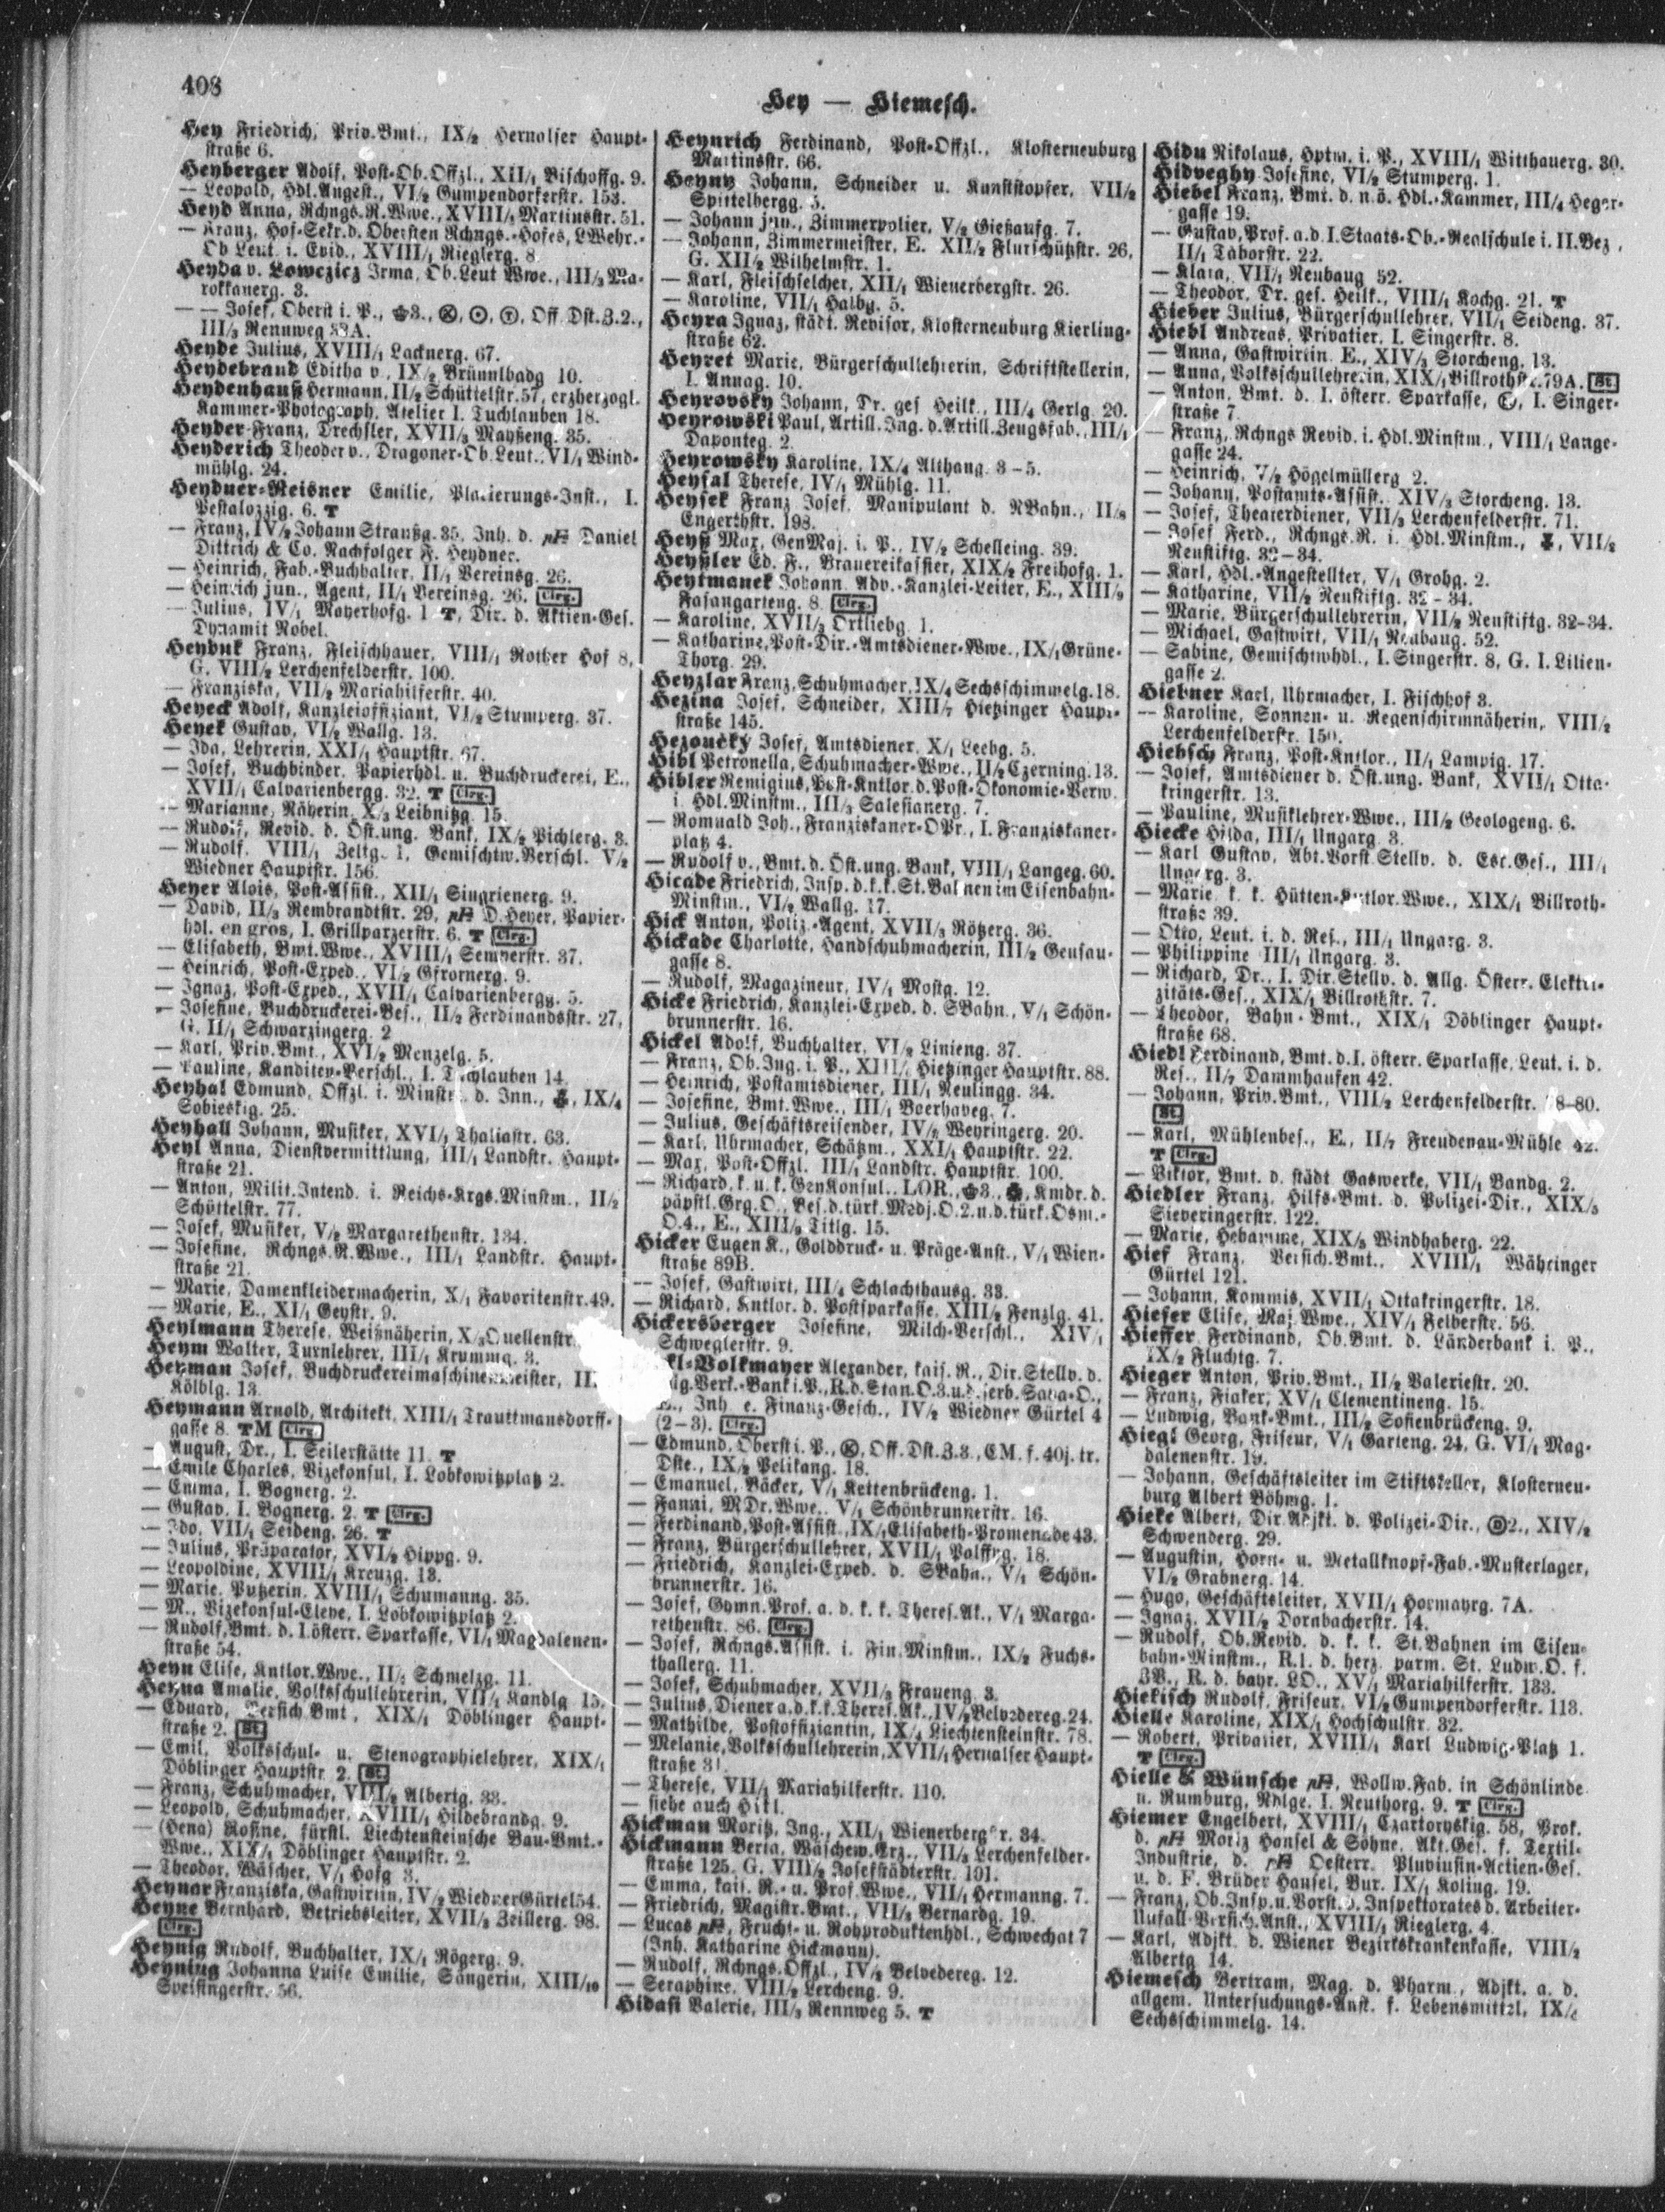 408
Hey — Hiemesch.
Hey Friedrich, Priv.Bmt., IX/2 Hernalser Haupt-
straße 6.
Heyberger Adolf, Post-Ob.Offzl., XII/1 Bischoffg. 9.
— Leopold, Hdl.Angest., VI/2 Gumpendorferstr. 153.
Heyd Anna, Rchngs.R.Wwe., XVIII/1 Martinsstr. 51.
— Franz, Hof-Sekr.d. Obersten Rchngs.-Hofes, LWehr.-
Ob Leut. i. Evid., XVIII/1 Rieglerg. 8
Heyda v. Lowczicz Irma, Ob.Leut Wwe., III/3 Ma-
rokkanerg. 3.
— — Josef, Oberst i. P., Off. Dst.Z.2.,
III/3 Rennweg A.
Heyde Julius, XVIII/1 Lacknerg. 67.
Heydebrand Editha v., IX/2 Brünnlbadg 10.
Heydenhauß Hermann, II/2 Schüttelstr. 57, erzherzogl.
Kammer-Photograph, Atelier I. Tuchlauben 18.
Heyder Franz, Drechsler, XVII/3 Mayßeng. 35.
Heyderich Theodor v., Dragoner-Ob.Leut., VI/1 Wind-
mühlg. 24.
Heydner-Reisner Emilie, Placierungs-Inst., I.
Pestalozzig. 6. T
— Franz, IV/2 Johann Straußg. 35, Inh. d. Daniel
Dittrich & Co. Nachfolger F. Heydner.
— Heinrich, Fab.-Buchhalter, II/1 Vereinsg. 26.
— Heinrich jun., Agent, II/1 Vereinsg. 26. Clrg.
— Julius, IV/1 Mayerhofg. 1 T, Dir. d. Aktien-Ges.
Dynamit Nobel.
Heyduk Franz, Fleischhauer, VIII/1 Rother Hof 8,
G. VIII/2 Lerchenfelderstr. 100.
— Franziska, VII/2 Mariahilferstr. 40.
Heyeck Adolf, Kanzleioffiziant, VI/2 Stumperg. 37.
Heyek Gustav, VI/2 Wallg. 13.
— Ida, Lehrerin, XXI/1 Hauptstr. 67.
— Josef, Buchbinder, Papierhdl. u. Buchdruckerei, E.,
XVII/1 Calvarienbergg. 32. T Clrg.
— Marianne, Näherin, X/3 Leibnitzg. 15.
— Rudolf, Revid. d. Öst.ung. Bank, IX/2 Pichlerg. 3.
— Rudolf, VIII/1 Zeltg. 1, Gemischtw.Verschl. V/2
Wiedner Hauptstr. 156.
Heyer Alois, Post-Assist., XII/1 Singrienerg. 9.
— David, II/3 Rembrandtstr. 29, D. Heyer, Papier-
hdl. en gros, I. Grillparzerstr. 6. T Clrg.
— Elisabeth, Bmt.Wwe., XVIII/1 Semperstr. 37.
— Heinrich, Post-Exped., VI/2 Gfrornerg. 9.
— Ignaz, Post-Exped., XVII/1 Calvarienbergg. 5.
— Josefine, Buchdruckerei-Bes., II/2 Ferdinandsstr. 27,
G. II/1 Schwarzingerg. 2
— Karl, Priv.Bmt., XVI/2 Menzelg. 5.
— Pauline, Kanditen-Verschl., I. Tuchlauben 14
Heyhal Edmund, Offzl. i. Minstm. d. Inn., IX/4
Sobieskig. 25.
Heyhall Johann, Musiker, XVI/1 Thaliastr. 63.
Heyl Anna, Dienstvermittlung, III/1 Landstr. Haupt-
straße 21.
— Anton, Milit.Intend. i. Reichs-Krgs.Minstm., II/2
Schüttelstr. 77.
— Josef, Musiker, V/2 Margarethenstr. 134.
— Josefine, Rchngs.R.Wwe., III/1 Landstr. Haupt-
straße 21.
— Marie, Damenkleidermacherin, X/1 Favoritenstr. 49.
— Marie, E., XI/1 Geystr. 9.
Heylmann Therese, Weißnäherin, X/3 Quellenstr.
Heym Walter, Turnlehrer, III/1 Krummg. 3.
Heyman Josef, Buchdruckereimaschinenmeister,
Kölblg. 13.
Heymann Arnold, Architekt, XIII/1 Trauttmansdorff-
gasse 8. TM Clrg.
— August, Dr., I. Seilerstätte 11. T
— Emile Charles, Vizekonsul, I. Lobkowitzplatz 2.
— Emma, I. Bognerg. 2.
— Gustav, I. Bognerg. 2. T Clrg.
— Ido, VII/1 Seideng. 26. T
— Julius, Präparator, XVI/2 Hippg. 9.
— Leopoldine, XVIII/1 Kreuzg. 13.
— Marie, Putzerin, XVIII/1 Schumanng. 35.
— M., Vizekonsul-Eleve, I. Lobkowitzplatz 2.
— Rudolf, Bmt. d. I. österr. Sparkasse, VI/1 Magdalenen-
straße 54.
Heyn Elise, Kntlor.Wwe., II/2 Schmelzg. 11.
Heyna Amalie, Volksschullehrerin, VII/1 Kandlg 15.
— Eduard, Versich.Bmt, XIX/1 Döblinger Haupt-
straße 2. St.
— Emil, Volksschul- u. Stenographielehrer, XIX/1
Döblinger Hauptstr. 2. St.
— Franz, Schuhmacher, VIII/2 Albertg. 33.
— Leopold, Schuhmacher, XVIII/1 Hildebrandg. 9.
— (Hena) Rosine, fürstl. Liechtensteinsche Bau-Bmt.-
Wwe., XIX/1 Döblinger Hauptstr. 2.
— Theodor, Wäscher, V/1 Hofg 3.
Heynar Franziska, Gastwirtin, IV/2 Wiedner Gürtel 54.
Heyne Bernhard, Betriebsleiter, XVII/3 Zeillerg. 98.
Clrg.
Heynig Rudolf, Buchhalter, IX/1 Rögerg. 9.
Heyning Johanna Luise Emilie, Sängerin, XIII/10
Speisingerstr. 56.
Heynrich Ferdinand, Post-Offzl., Klosterneuburg
Martinsstr. 66.
Heyny Johann, Schneider u. Kunststopfer, VII/2
Spittelbergg. 5.
— Johann jun., Zimmerpolier, V/2 Gießaufg. 7.
— Johann, Zimmermeister, E. XII/2 Flurschützstr. 26,
G. XII/2 Wilhelmstr. 1.
— Karl, Fleischselcher, XII/1 Wienerbergstr. 26.
— Karoline, VII/1 Halbg. 5.
Heyra Ignaz, städt. Revisor, Klosterneuburg Kierling-
straße 62.
Heyret Marie, Bürgerschullehrerin, Schriftstellerin,
I. Annag. 10.
Heyrovsky Johann, Dr. ges Heilk., III/4 Gerlg. 20.
Heyrowski Paul, Artill.Ing. d.Artill.Zeugsfab., III/1
Daponteg. 2.
Heyrowsky Karoline, IX/4 Althang. 3–5.
Heysal Therese, IV/1 Mühlg. 11.
Heysek Franz Josef, Manipulant d. NBahn., II/8
Engerthstr. 193.
Heyß Max, GenMaj. i. P., IV/2 Schelleing. 39.
Heyßler Ed. F., Brauereikassier, XIX/2 Freihofg. 1.
Heytmanek Johann Adv.-Kanzlei-Leiter, E., XIII/9
Fasangarteng. 8 Clrg.
— Karoline, XVII/3 Ortliebg. 1.
— Katharine, Post-Dir.-Amtsdiener-Wwe., IX/1 Grüne-
Thorg. 29.
Heyzlar Franz, Schuhmacher, IX/4 Sechsschimmelg. 18.
Hezina Josef, Schneider, XIII/7 Hietzinger Haupt-
straße 145.
Hezoucky Josef, Amtsdiener, X/1 Leebg. 5.
Hibl Petronella, Schuhmacher-Wwe., II/2 Czerning. 13.
Hibler Remigius, Post-Kntlor.d.Post-Ökonomie-Verw.
i. Hdl.Minstm., III/3 Salesianerg. 7.
— Romuald Joh., Franziskaner-OPr., I. Franziskaner-
platz 4.
— Rudolf v., Bmt. d. Öst.ung. Bank, VIII/1 Langeg. 60.
Hicade Friedrich, Insp. d.k.k.St.Bahnen im Eisenbahn-
Minstm., VI/2 Wallg. 17.
Hick Anton, Poliz.-Agent, XVII/3 Rötzerg. 36.
Hickade Charlotte, Handschuhmacherin, III/2 Geusau-
gasse 8.
— Rudolf, Magazineur, IV/1 Mostg. 12.
Hicke Friedrich, Kanzlei-Exped. d. SBahn., V/1 Schön-
brunnerstr. 16.
Hickel Adolf, Buchhalter, VI/2 Linieng. 37.
— Franz, Ob.Ing. i. P., XIII/ Hietzinger Hauptstr. 88.
— Heinrich, Postamtsdiener, III/1 Reulingg. 34.
— Josefine, Bmt.Wwe., III/1 Boerhaveg. 7.
— Julius, Geschäftsreisender, IV/2 Weyringerg. 20.
— Karl, Uhrmacher, Schätzm., XXI/1 Hauptstr. 22.
— Max, Post-Offzl. III/1 Landstr. Hauptstr. 100.
— Richard, k. u. k. GenKonsul., LOR., Kmdr. d.
päpstl.Grg.O., Bes.d.türk.Medj.O.2.u.d.türk.Osm.-
O.4., E., XIII/2 Titlg. 15.
Hicker Eugen K., Golddruck- u. Präge-Anst., V/1 Wien-
straße 89B.
— Josef, Gastwirt, III/4 Schlachthausg. 33.
— Richard, Kntlor. d. Postsparkasse, XIII/2 Fenzlg. 41.
Hickersberger Josefine, Milch-Verschl., XIV/1
Schweglerstr. 9.
kl-Volkmayer Alexander, kais. R., Dir.Stellv. d.
Verk.-Bank i.P., R.d.Stan.O.3.u.d.serb.Sava-O.,
Inh e. Finanz-Gesch., IV/2 Wiedner Gürtel 4
(2–3). Clrg.
— Edmund, Oberst i. P., Off. Dst.Z.3., EM. f. 40j. tr.
Dste., IX/2 Pelikang. 18.
— Emanuel, Bäcker, V/1 Kettenbrückeng. 1.
— Fanni, MDr.Wwe., V/1 Schönbrunnerstr. 16.
— Ferdinand, Post-Assist., IX/1 Elisabeth-Promenade 43.
— Franz, Bürgerschullehrer, XVII/1 Palffyg. 18.
— Friedrich, Kanzlei-Exped. d. SBahn., V/1 Schön-
brunnerstr. 16.
— Josef, Gymn.Prof. a. d. k. k. Theres.Ak., V/1 Marga-
rethenstr. 86. Clrg.
— Josef, Rchngs.Assist. i. Fin.Minstm., IX/2 Fuchs-
thallerg. 11.
— Josef, Schuhmacher, XVII/2 Fraueng. 3.
— Julius, Diener a.d.k.k.Theres.Ak., IV/2 Belvedereg. 24.
— Mathilde, Postoffiziantin, IX/4 Liechtensteinstr. 78.
— Melanie, Volksschullehrerin, XVII/1 Hernalser Haupt-
straße 31.
— Therese, VII/1 Mariahilferstr. 110.
— siehe auch Hikl.
Hickman Moritz, Ing., XII/1 Wienerbergstr. 34.
Hickmann Berta, Wäschew.Erz., VII/2 Lerchenfelder-
straße 125, G. VIII/2 Josefstädterstr. 101.
— Emma, kais. R.- u. Prof.Wwe., VII/1 Hermanng. 7.
— Friedrich, Magistr.Bmt., VII/3 Bernardg. 19.
— Lucas, Frucht- u. Rohproduktenhdl., Schwechat 7
(Inh. Katharine Hickmann).
— Rudolf, Rchngs.Offzl., IV/2 Belvedereg. 12.
— Seraphine, VIII/2 Lercheng. 9.
Hidasi Valerie, III/3 Rennweg 5. T
Hidu Nikolaus, Hptm. i. P., XVIII/1 Witthauerg. 30.
Hidveghy Josefine, VI/2 Stumperg. 1.
Hiebel Franz, Bmt. d. n.ö. Hdl.-Kammer, III/4 Heger-
gasse 19.
— Gustav, Prof. a.d. I.Staats-Ob.-Realschule i. II.Bez.,
II/1 Taborstr. 22.
— Klara, VII/1 Neubaug 52.
— Theodor, Dr. ges. Heilk., VIII/1 Kochg. 21. T
Hieber Julius, Bürgerschullehrer, VII/1 Seideng. 37.
Hiebl Andreas, Privatier, I. Singerstr. 8.
— Anna, Gastwirtin, E., XIV/3 Storcheng. 13.
— Anna, Volksschullehrerin, XIX/1 Billrothstr. 79A. St.
— Anton, Bmt. d. I. österr. Sparkasse, I. Singer-
straße 7.
— Franz, Rchngs Revid. i. Hdl.Minstm., VIII/1 Lange-
gasse 24.
— Heinrich, V/2 Högelmüllerg 2.
— Johann, Postamts-Assist., XIV/3 Storcheng. 13.
— Josef, Theaterdiener, VII/3 Lerchenfelderstr. 71.
— Josef Ferd., Rchngs.R. i. Hdl.Minstm., VII/2
Neustiftg. 32–34.
— Karl, Hdl.-Angestellter, V/1 Grohg. 2.
— Katharine, VII/2 Neustiftg. 32–34.
— Marie, Bürgerschullehrerin, VII/2 Neustiftg. 32–34.
— Michael, Gastwirt, VII/1 Neubaug. 52.
— Sabine, Gemischtwhdl., I. Singerstr. 8, G. I. Lilien-
gasse 2.
Hiebner Karl, Uhrmacher, I. Fischhof 3.
— Karoline, Sonnen- u. Regenschirmnäherin, VIII/2
Lerchenfelderstr. 150.
Hiebsch Franz, Post-Kntlor., II/1 Lampig. 17.
— Josef, Amtsdiener d. Öst.ung. Bank, XVII/1 Otta-
kringerstr. 13.
— Pauline, Musiklehrer-Wwe., III/2 Geologeng. 6.
Hiecke Hilda, III/1 Ungarg. 3.
— Karl Gustav, Abt.Vorst.Stellv. d. Esc.Ges., III/1
Ungarg. 3.
— Marie, k. k. Hütten-Kntlor.Wwe., XIX/1 Billroth-
straße 39.
— Otto, Leut. i. d. Res., III/1 Ungarg. 3.
— Philippine III/1 Ungarg. 3.
— Richard, Dr., I. Dir.Stellv. d. Allg. Österr. Elektri-
zitäts-Ges., XIX/1 Billrothstr. 7.
— Theodor, Bahn-Bmt., XIX/1 Döblinger Haupt-
straße 68.
Hiedl Ferdinand, Bmt. d.I. österr. Sparkasse, Leut. i. d.
Res., II/7 Dammhaufen 42.
— Johann, Priv.Bmt., VIII/2 Lerchenfelderstr. 8–80.
St.
— Karl, Mühlenbes., E., II/7 Freudenau-Mühle 42.
T Clrg.
— Viktor, Bmt. d. städt Gaswerke, VII/1 Bandg. 2.
Hiedler Franz, Hilfs-Bmt. d. Polizei-Dir., XIX/3
Sieveringerstr. 122.
— Marie, Hebamme, XIX/3 Windhaberg. 22.
Hief Franz, Versich.Bmt., XVIII/1 Währinger
Gürtel 121.
— Johann, Kommis, XVII/1 Ottakringerstr. 18.
Hiefer Elise, Maj.Wwe., XIV/1 Felberstr. 56.
Hieffer Ferdinand, Ob.Bmt. d. Länderbank i. P.,
IX/2 Fluchtg. 7.
Hieger Anton, Priv.Bmt., II/2 Valeriestr. 20.
— Franz, Fiaker, XV/1 Clementineng. 15.
— Ludwig, Bank-Bmt., III/2 Sofienbrückeng. 9.
Hiegl Georg, Friseur, V/1 Garteng. 24, G. VI/1 Mag-
dalenenstr. 19.
— Johann, Geschäftsleiter im Stiftskeller, Klosterneu-
burg Albert Böhmg. 1.
Hieke Albert, Dir.Adjkt. d. Polizei-Dir., 2., XIV/2
Schwenderg. 29.
— Augustin, Horn- u. Metallknopf-Fab.-Musterlager,
VI/2 Grabnerg. 14.
— Hugo, Geschäftsleiter, XVII/1 Hormayrg. 7A.
— Ignaz, XVII/2 Dornbacherstr. 14.
— Rudolf, Ob.Revid. d. k. k. St.Bahnen im Eisen-
bahn-Minstm., R.I. d. herz. parm. St. Ludw.O. f.
ZV., R. d. bayr. LO., XV/1 Mariahilferstr. 133.
Hiekisch Rudolf, Friseur, VI/2 Gumpendorferstr. 113.
Hielle Karoline, XIX/1 Hochschulstr. 32.
— Robert, Privatier, XVIII/1 Karl Ludwig-Platz 1.
T Clrg.
Hielle & Wünsche, Wollw.Fab. in Schönlinde
u. Rumburg, Ndlge. I. Neuthorg. 9. T Clrg.
Hiemer Engelbert, XVIII/1 Czartoryskig. 58, Prok.
d. Moriz Hansel & Söhne, Akt.Ges. f. Textil-
Industrie, d. Oesterr. Pluviusin-Actien-Ges.
u. d. F. Brüder Hansel, Bur. IX/1 Koling. 19.
— Franz, Ob.Insp.u.Vorst.d. Inspektorates d. Arbeiter-
Unfall-Versich.Anst., XVIII/1 Rieglerg. 4.
— Karl, Adjkt. d. Wiener Bezirkskrankenkasse, VIII/2
Albertg 14.
Hiemesch Bertram, Mag. d. Pharm., Adjkt. a. d.
allgem. Untersuchungs-Anst. f. Lebensmittel, IX/
Sechsschimmelg. 14.